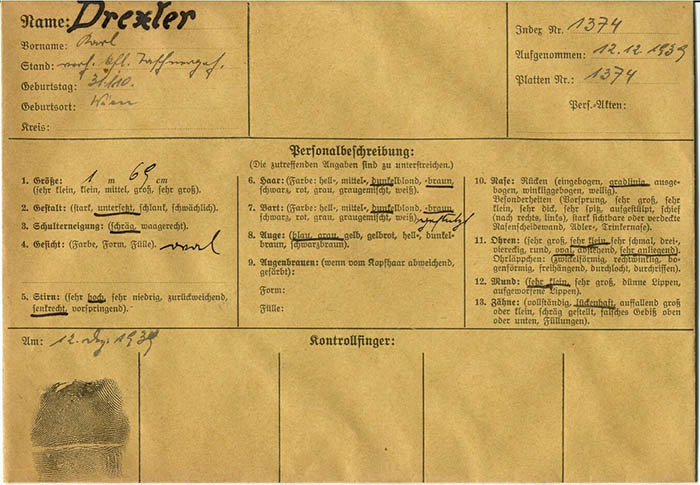 Name: Drexler
Vorname: Karl
Stand: verh. Taschnergeh.
Geburtstag:
Geburtsort: Wien
Kreis:
Index Nr. 1374
Aufgenommen: 12.12 1939
Platten Nr.: 1374
Pers.-Akten:
Personalbeschreibung:
(Die zutreffenden Angaben sind zu unterstreichen.)
1. Größe: 1 m 69 cm
(sehr klein, klein, mittel, groß, sehr groß).
2. Gestalt: (stark, untersetzt, schlank, schwächlich).
3. Schulterneigung: (schräg, waagerecht).
4. Gesicht: (Farbe, Form, Fülle). oval
5. Stirn: (sehr hoch, sehr niedrig, zurückweichend,
senkrecht, vorspringend).
6. Haar: (Farbe: hell-, mittel-, dunkelblond, -braun,
schwarz, rot, grau, graugemischt, weiß).
7. Bart: (Farbe: hell-, mittel-, dunkelblond, -braun,
schwarz, rot, grau, graugemischt, weiß).
8. Auge: (blau, grau, gelb, gelbrot, hell-, dunkel-
braun, schwarzbraun).
9. Augenbrauen: (wenn vom Kopfhaar abweichend,
gefärbt):
Form:
Fülle:
10. Nase: Rücken (eingebogen, gradlinig, ausge-
bogen, winkliggebogen, wellig).
Besonderheiten (Vorsprung, sehr groß, sehr
klein, sehr dick, sehr spitz, aufgestülpt, schief
(nach rechts, links), stark sichtbare oder verdeckte
Nasenscheidewand, Adler-, Trinkernase).
11. Ohren: (sehr groß, sehr klein, sehr schmal, drei-
viereckig, rund, oval, abstehend, sehr anliegend).
Ohrläppchen: (zwickelförmig, rechtwinklig, bo-
genförmig, freihängend, durchlocht, durchrissen).
12. Mund: (sehr klein, sehr groß, dünne Lippen,
aufgeworfene Lippen).
13. Zähne: (vollständig, lückenhaft, auffallend groß
oder klein, schräg gestellt, falsches Gebiß oben
oder unten, Füllungen).
Am: 12. Dez. 1939
Kontrollfinger: